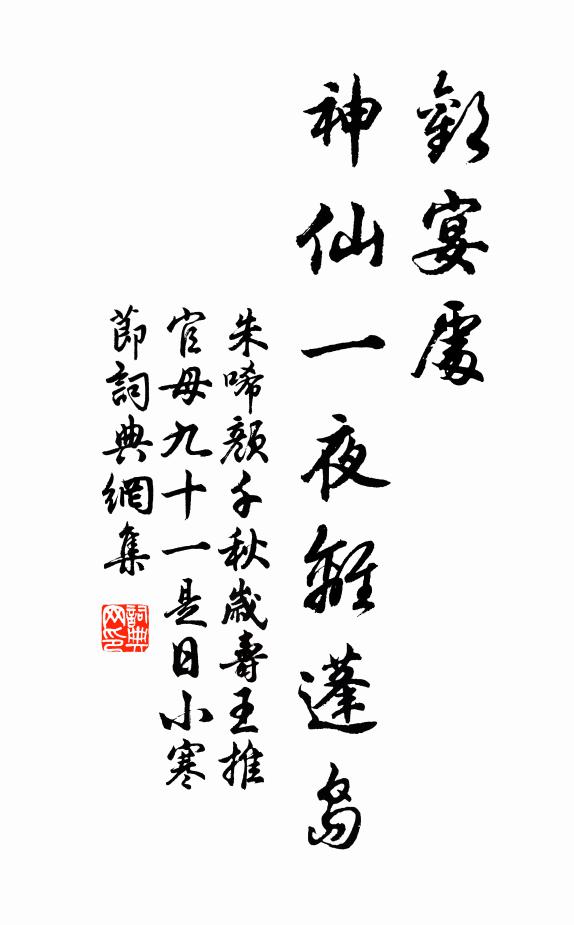 歡宴處
神仙一夜離蓬島
朱唏顏千秋歲壽王推
官母九十一是日小寒
節詞典網集
詞典网印